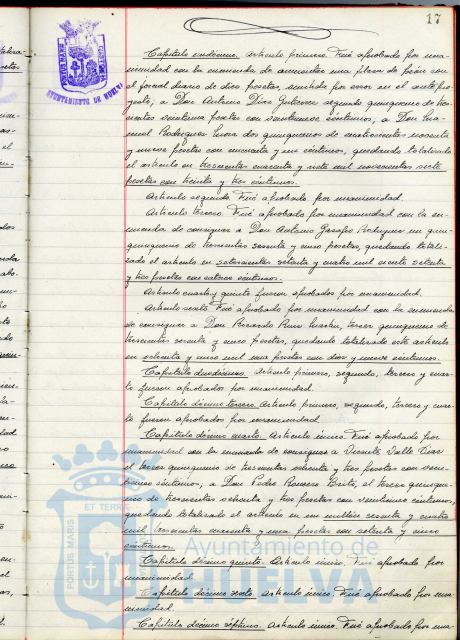 17
Capítulo undécimo. Artículo primero. Fué aprobado por una-
nimidad con la enmienda de aumentar una plaza de peón con
el jornal diario de diez pesetas, omitida por error en el ante pro-
yecto, a Don Antonio Díaz Gutierrez segundo quinquenio de tres-
cientas setenta pesetas con veintinueve céntimos, a Don Ma-
nuel Rodriguez dos quinquenios de cuatrocientas noventa
y nueve pesetas con cincuenta y un céntimos, quedando totalizado
el artículo en trescientas cuarenta y siete mil novecientas siete
pesetas con treinta y tres céntimos.
Artículo segundo. Fué aprobado por unanimidad.
Artículo tercero. Fué aprobado por unanimidad con la en-
mienda de consignar a Don Antonio Rodriguez un quin-
quenio de trescientas sesenta y cinco pesetas, quedando totali-
zado el artículo en setecientas setenta y cuatro mil ciento setenta
y tres pesetas con catorce céntimos.
Artículo cuarto y quinto fueron aprobados por unanimidad.
Artículo sexto. Fué aprobado por unanimidad con la enmienda
de consignar a Don Ricardo tercer quinquenio de
trescientas sesenta y cinco pesetas, quedando totalizado este artículo
en ochenta y cinco mil una pesetas con diez y nueve céntimos.
Capítulo duodécimo. Artículo primero, segundo, tercero y cuar-
to fueron aprobados por unanimidad.
Capítulo décimo tercero. Artículo primero, segundo, tercero y cuar-
to fueron aprobados por unanimidad.
Capítulo décimo cuarto. Artículo único. Fué aprobado por
unanimidad con la enmienda de consignar a Vicente Valle Diaz
el tercer quinquenio de trescientas ochenta y tres pesetas con vein-
tiuno céntimos, a Don Pedro Romero el tercer quinque-
nio de trescientas ochenta y tres pesetas con veintiuno céntimos,
quedando totalizado el artículo en un millón sesenta y cuatro
mil trescientas cuarenta y una pesetas con setenta y cinco
céntimos.
Capítulo décimo quinto. Artículo único. Fué aprobado por
unanimidad.
Capítulo décimo sexto. Artículo único. Fué aprobado por una-
nimidad.
Capítulo décimo séptimo. Artículo único. Fué aprobado por una-
AYUNTAMIENTO DE HUELVA
PORTUS MARIS
ET TERRE
Ayuntamiento de
HUELVA